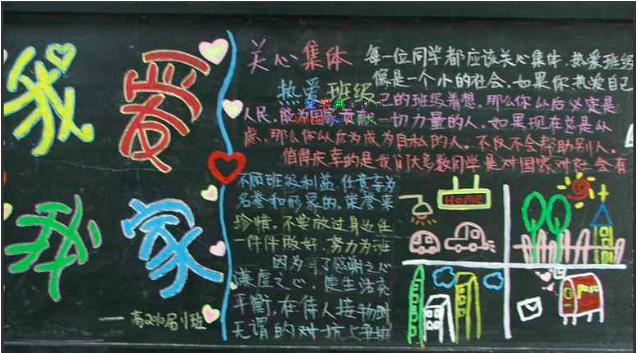 我爱
我家
一高2010届11班
关心集体
热爱班级
每一位同学都应该关心集体,热爱班级
像是一个小的社会,如果你热爱自己
己的班级着想,那么你以后必定是
人民,能为国家贡献一切力量的人,如果现在总是从
虑,那么你以后为成为自私的人,不仅不会帮助别人,
值得庆幸的是我们大多数同学是对国家对社会有
不顾班级利益,任意妄为
名誉和形象的,荣誉来
珍惜,不要放过身边任
一件件做好,努力为班
因为有了感谢之心
谦虚之心,使生活充
平衡,在待人接物时
无谓的对抗与争
Home